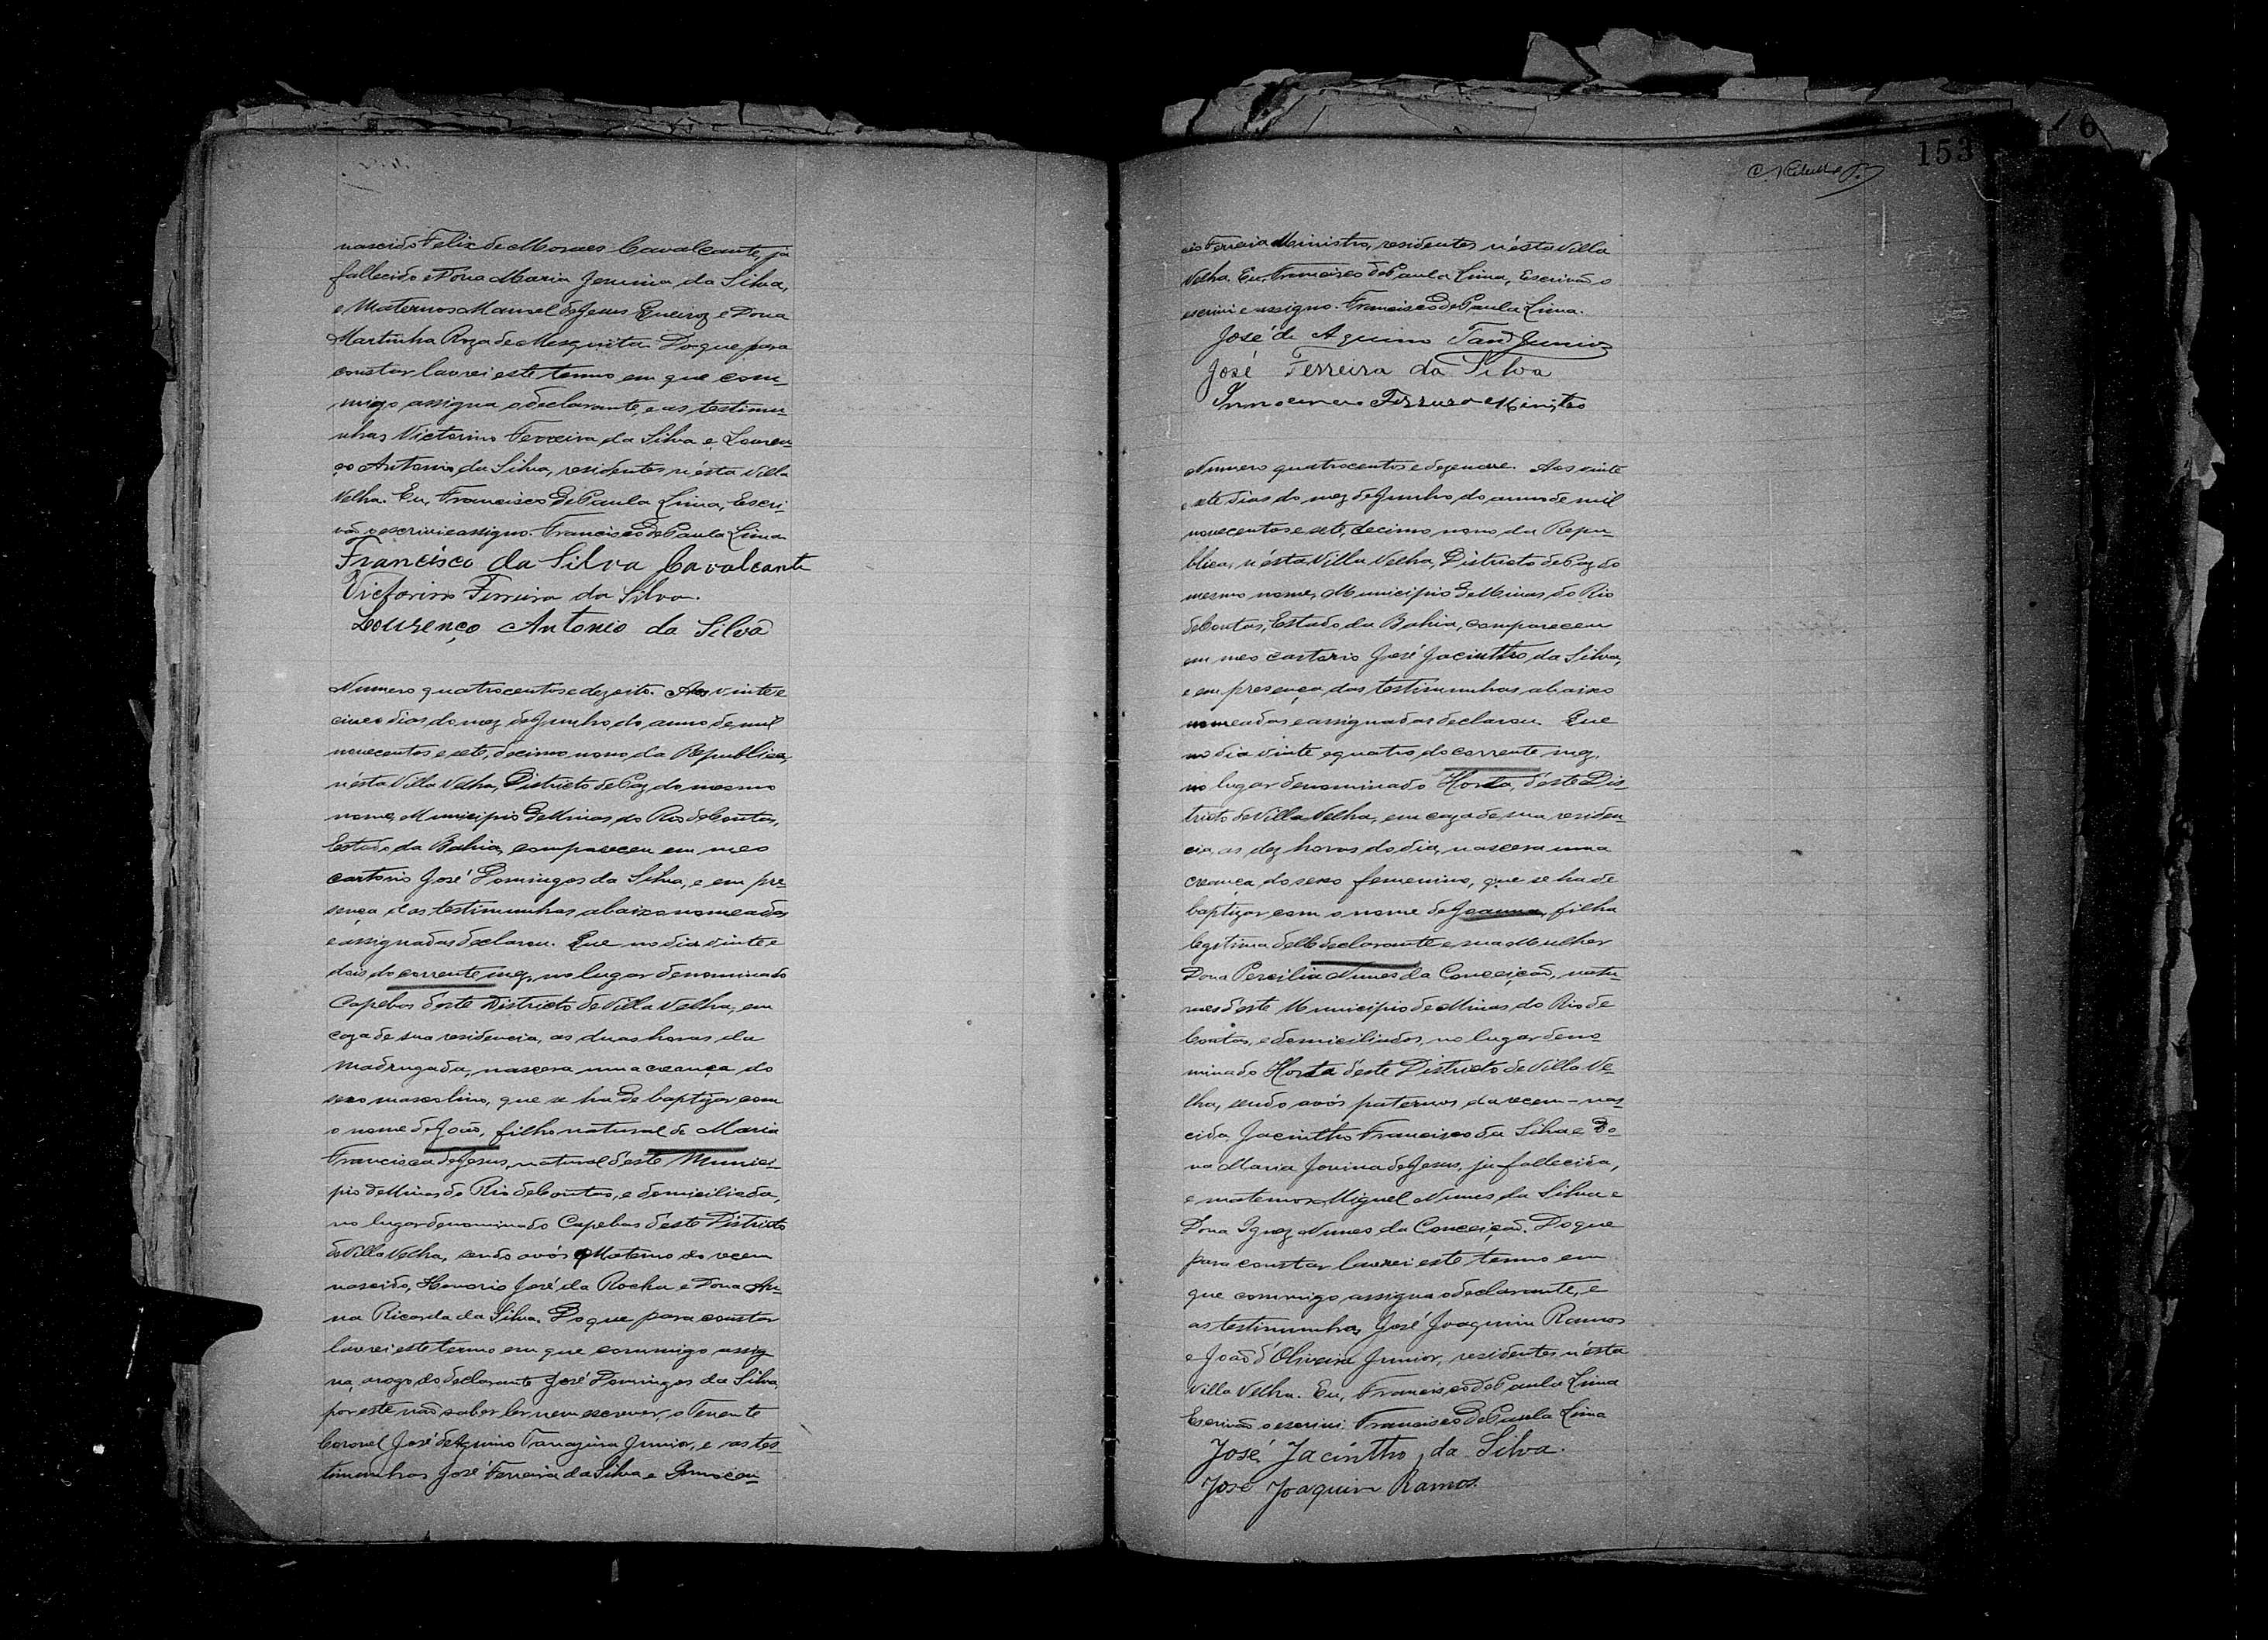 nascido Felix de Moraes Cavalcante, ja
fallecido e Dona Maria Jesuina da Silva,
e Maternos Manoel de Jesus Queiroz e Dona
Martinha Roza de Mesquita. Do que para
constar lavrei este termo em que com-
migo assigna o declarante, e as testimu-
nhas Victorino Ferreira da Silva e Louren-
ço Antonio da Silva, residentes n'ésta Villa
Velha. Eu, Francisco de Paula Lima, Escri-
vão o escrivi e assigno. Francisco de Paula Lima
Francisco da Silva Cavalcante
Victorino Ferreira da Silva.
Lourenço Antonio da Silva
Numero quatrocentos e dezoito. Aos vinte e
cinco dias do mez de Junho do anno de mil
novecentos e sete, decimo nono da Republica,
n'ésta Villa Velha, Districto de Paz do mesmo
nome, Municipio de Minas do Rio de Contas,
Estado da Bahia, compareceu em meo
cartorio José Domingos da Silva, e em pre-
sença das testimunhas abaixo nomeadas
e assignadas declarou. Que no dia vinte e
dois do corrente mez, no lugar denominado
Capebas d'este Districto de Villa Velha, em
caza de sua residencia, as duas horas da
madrugada, nascera uma creança do
sexo mascolino, que se ha de baptizar com
o nome de João, filho natural de Maria
Francisca de Jesus, natural d'este Munici-
pio de Minas do Rio de Contas, e domiciliada,
no lugar denominado Capebas d'este Districto
de Villa Velha, sendo avós Materno do recem
nascido, Honorio José da Rocha e Dona An-
na Ricarda da Silva. Do que para constar
lavrei este termo em que commigo assig
na, arogo do declarante José Domingos da Silva,
por este não saber ler nem escrever, o Tenente
Coronel José de Aquino Tanajura Junior, e as tes-
timunhas José Ferreira da Silva e Innocen-
153
cio Ferreira Ministro, residentes n'ésta Villa
Velha. Eu, Francisco de Paula Lima, Escrivão o
escrivi e assigno. Francisco de Paula Lima.
José de Aquino Tanª Junior
José Ferreira da Silva
Innocencio Ferreira Ministro
Numero quatrocentos e dezenove. Aos vinte
e sete dias do mez de Junho do anno de mil
novecentos e sete, decimo nono da Repu-
blica, n'ésta Villa Velha, Districto de Paz do
mesmo nome, Municipio de Minas do Rio
de Contas, Estado da Bahia, compareceu
em meo cartorio José Jacinttho da Silva,
e em presença das testimunhas abaixo
nomeadas e assignadas declarou. Que
no dia vinte e quatro do corrente mez,
no lugar denominado Horta, d'éste Dis-
tricto de Villa Velha, em caza de sua residen-
cia, as dez horas do dia, nascera uma
creança do sexo femenino, que se ha de
baptizar com o nome de Joanna, filha
legitima delle declarante e sua Mulher
Dona Percilia Nunes da Conceição, natu-
raes d'este Municipio de Minas do Rio de
Contas, e domiciliados, no lugar deno
minado Horta d'éste Districto de Villa Ve-
lha, sendo avós paternos da recem-nas-
cida, Jacinttho Francisco da Silva e Do-
na Maria Jovina de Jesus, ja fallecida,
e maternos, Miguel Nunes da Silva e
Dona Ignez Nunes da Conceição. Do que
para constar lavrei este termo em
que commigo assigna o declarante, e
as testimunhas, José Joaquim Ramos
e João d'Oliveira Junior, residentes n'ésta
Villa Velha. Eu, Francisco de Paula Lima
Escrivão o escrivi. Francisco de Paula Lima
José Jacinttho da Silva.
José Joaquim Ramos.